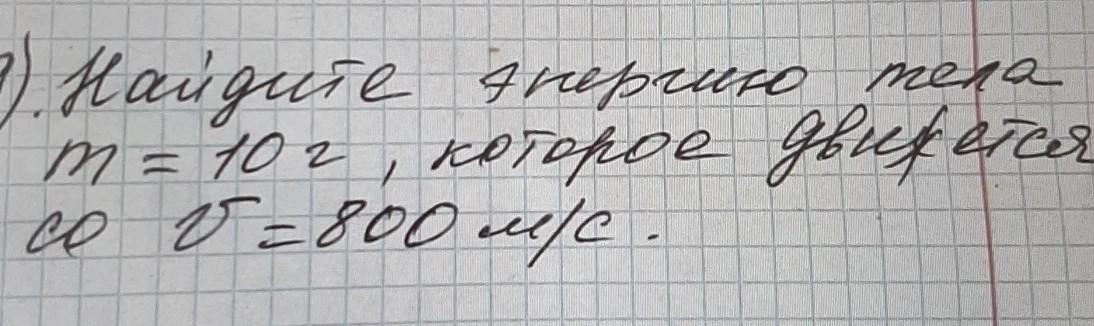 ). Найдите энергию тела
m = 10 г, которое движется
со υ = 800 м/с.